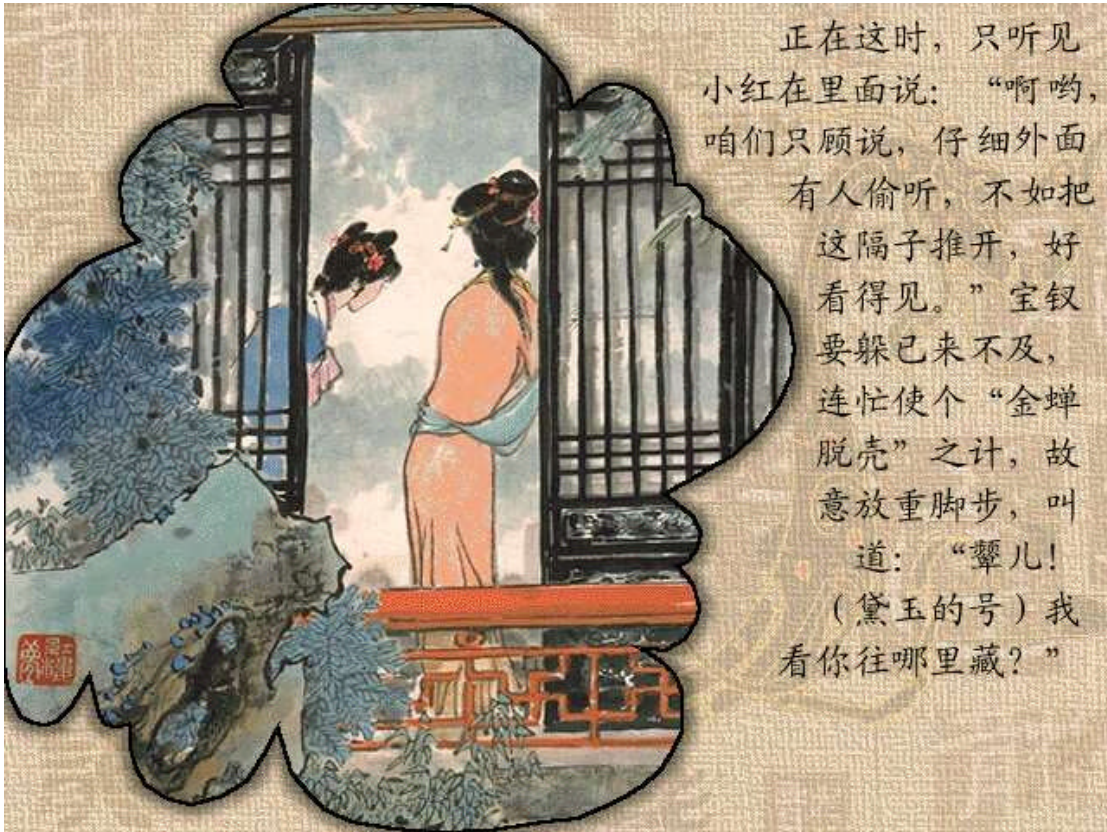 正在这时，只听见
小红在里面说：“啊哟，
咱们只顾说，仔细外面
有人偷听，不如把
这隔子推开，好
看得见。”宝钗
要躲已来不及，
连忙使个“金蝉
脱壳”之计，故
意放重脚步，叫
道：“颦儿！
（黛玉的号）我
看你往哪里藏？”